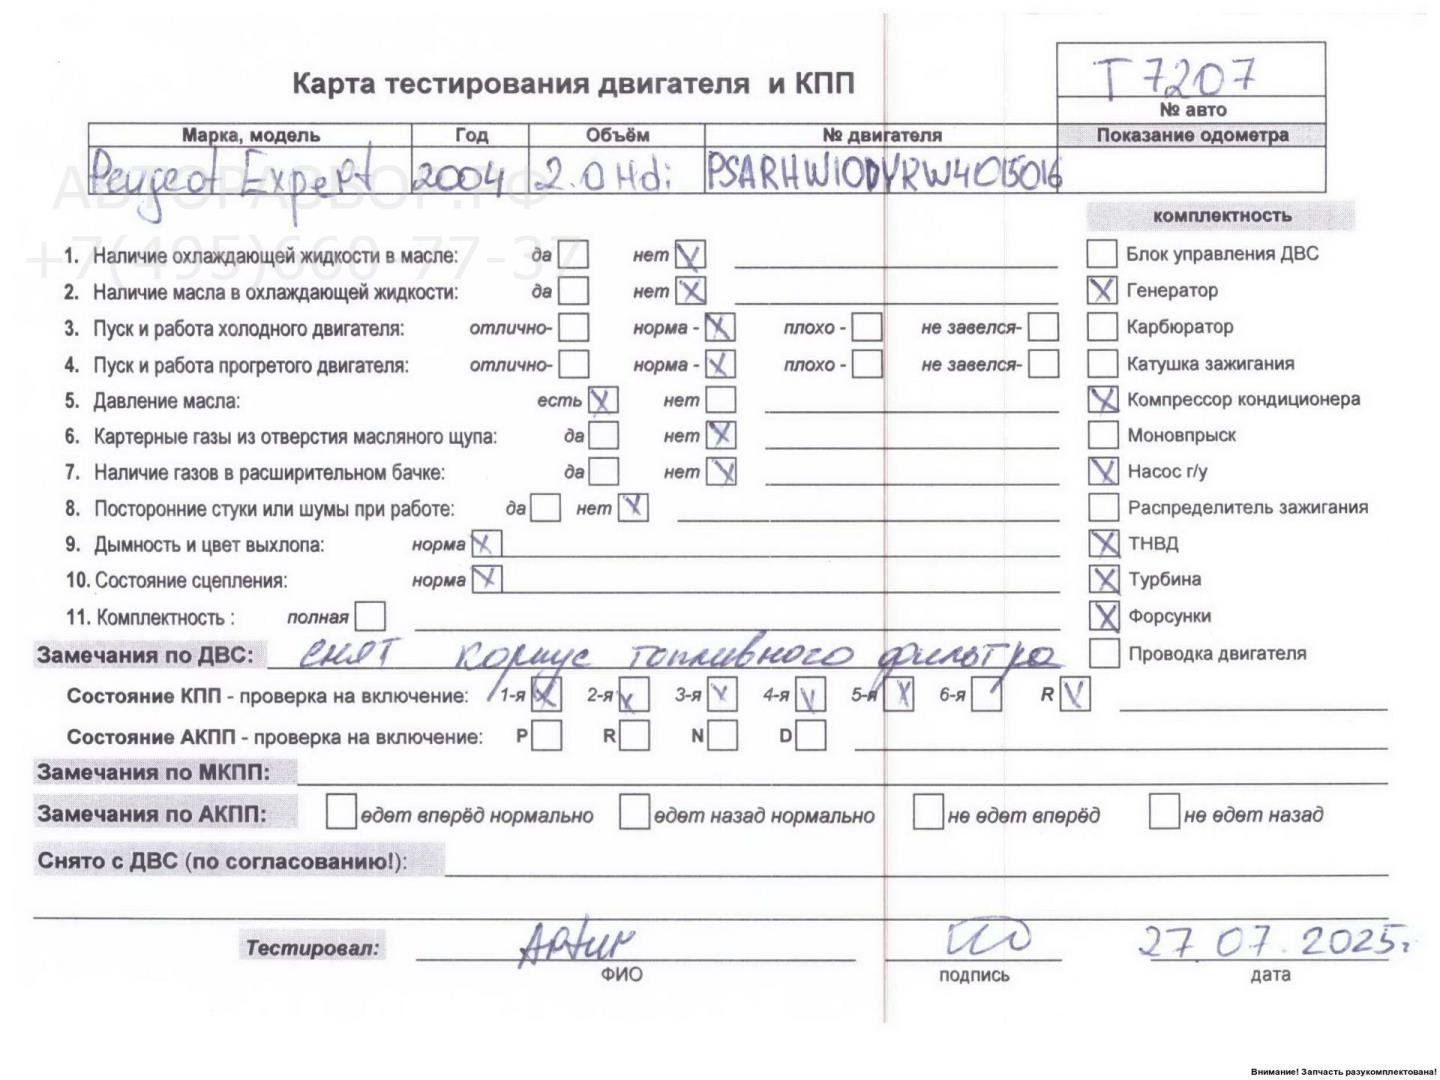 Т 7207
Карта тестирования двигателя и КПП
№ авто
Марка, модель Год Объём № двигателя Показание одометра
Peugeot Expert 2004 2.0 Hdi PSARHW10DYRW4015016
АВТОРАЗБОР.РФ
+7(495)668-77-37
комплектность
1. Наличие охлаждающей жидкости в масле: да нет Блок управления ДВС
2. Наличие масла в охлаждающей жидкости: да нет Генератор
3. Пуск и работа холодного двигателя: отлично- норма - плохо - не завелся- Карбюратор
4. Пуск и работа прогретого двигателя: отлично- норма - плохо - не завелся- Катушка зажигания
5. Давление масла: есть нет Компрессор кондиционера
6. Картерные газы из отверстия масляного щупа: да нет Моновпрыск
7. Наличие газов в расширительном бачке: да нет Насос г/у
8. Посторонние стуки или шумы при работе: да нет Распределитель зажигания
9. Дымность и цвет выхлопа: норма ТНВД
10. Состояние сцепления: норма Турбина
11. Комплектность : полная Форсунки
Замечания по ДВС: снят корпус топливного фильтра Проводка двигателя
Состояние КПП - проверка на включение: 1-я 2-я 3-я 4-я 5-я 6-я R
Состояние АКПП - проверка на включение: P R N D
Замечания по МКПП:
Замечания по АКПП: едет вперёд нормально едет назад нормально не едет вперёд не едет назад
Снято с ДВС (по согласованию!):
Тестировал: Артур 27.07.2025г.
ФИО подпись дата
Внимание! Запчасть разукомплектована!